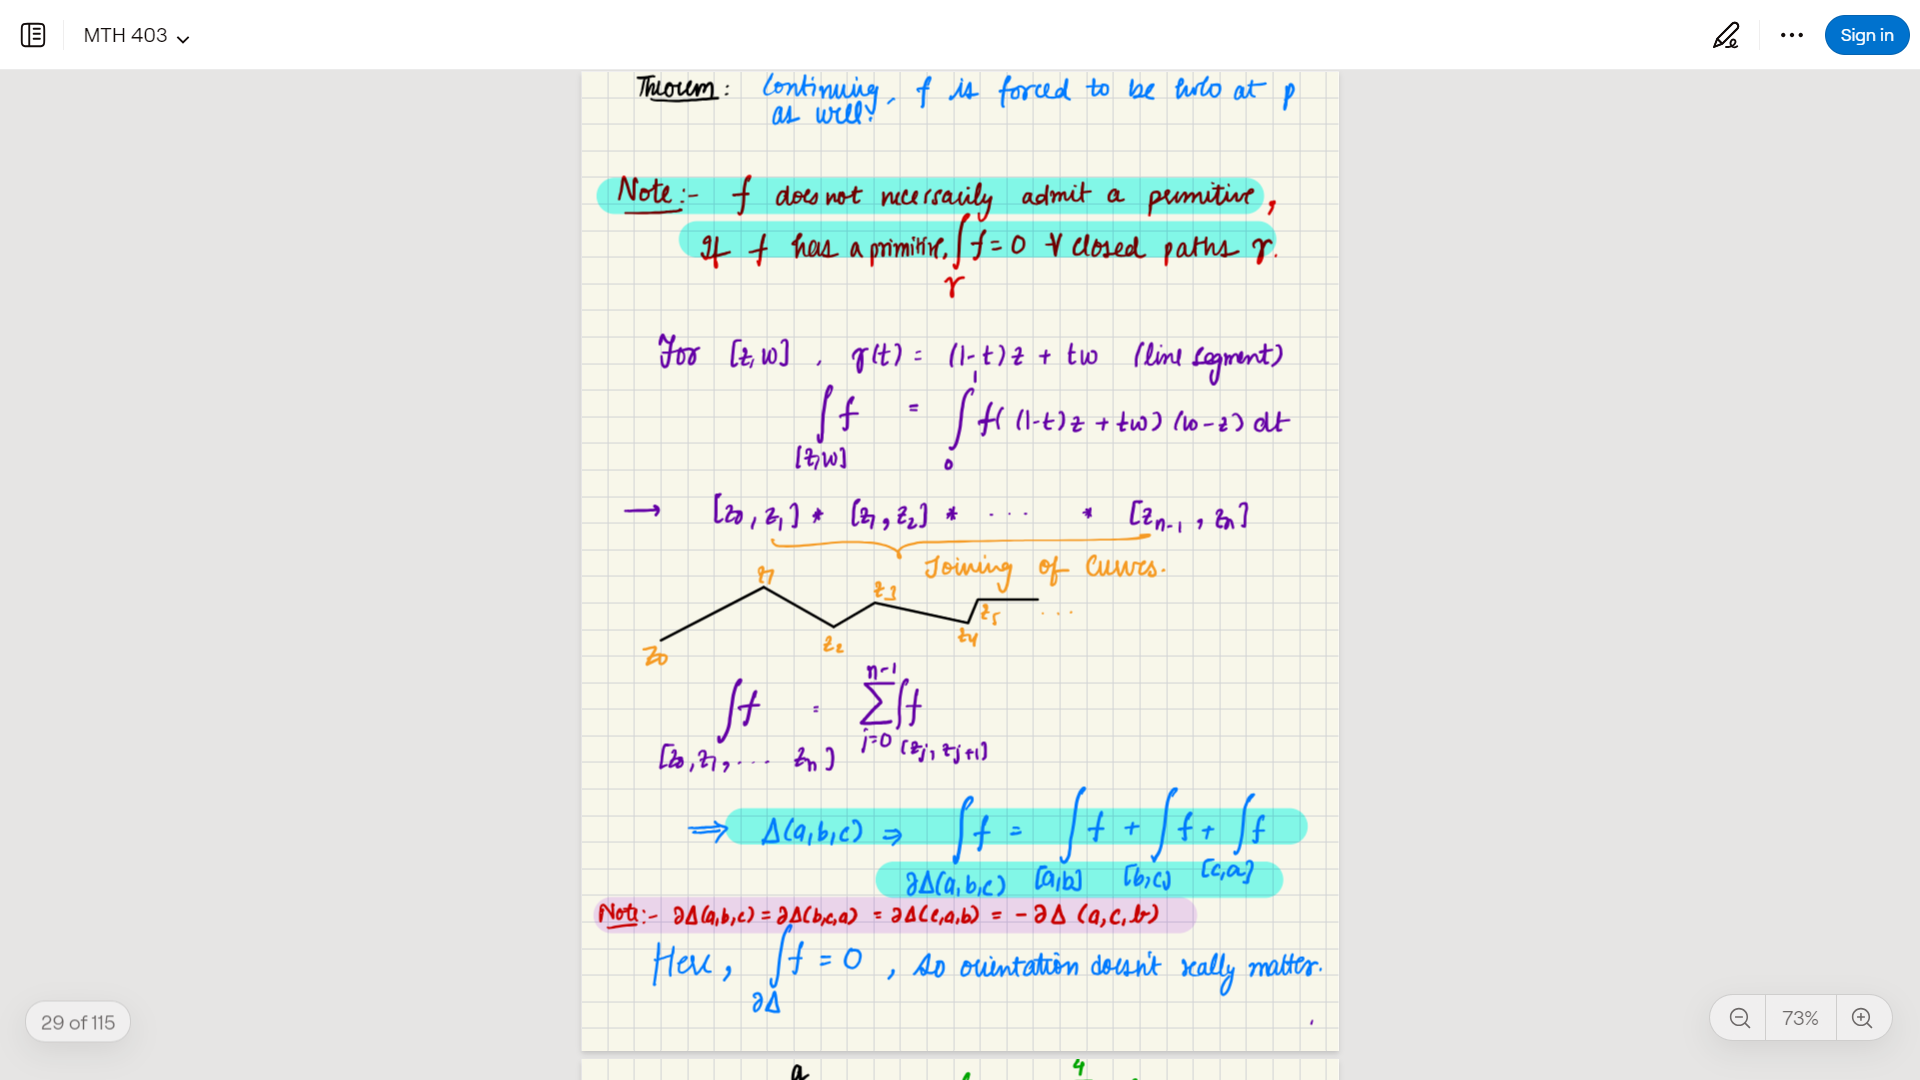 MTH 403
Sign in
Theorem: Continuing, f is forced to be holo at p
as well!
Note:- f does not necessarily admit a primitive,
If f has a primitive, ∫f = 0 ∀ closed paths γ.
γ
For [z,w], γ(t) = (1-t)z + tw (line segment)
∫f = ∫₀¹ f((1-t)z + tw)(w-z) dt
[z,w]
→ [z₀,z₁] * [z₁,z₂] * ... * [zₙ₋₁, zₙ]
Joining of Curves.
z₀ z₁ z₂ z₃ z₄ z₅ ...
∫f = Σ ∫f
n-1
[z₀,z₁,... zₙ] j=0 [zⱼ, zⱼ₊₁]
⇒ Δ(a,b,c) ⇒ ∫f = ∫f + ∫f + ∫f
∂Δ(a,b,c) [a,b] [b,c] [c,a]
Note:- ∂Δ(a,b,c) = ∂Δ(b,c,a) = ∂Δ(c,a,b) = -∂Δ (a,c,b)
Here, ∫f = 0, so orientation doesn't really matter.
∂Δ
29 of 115
73%